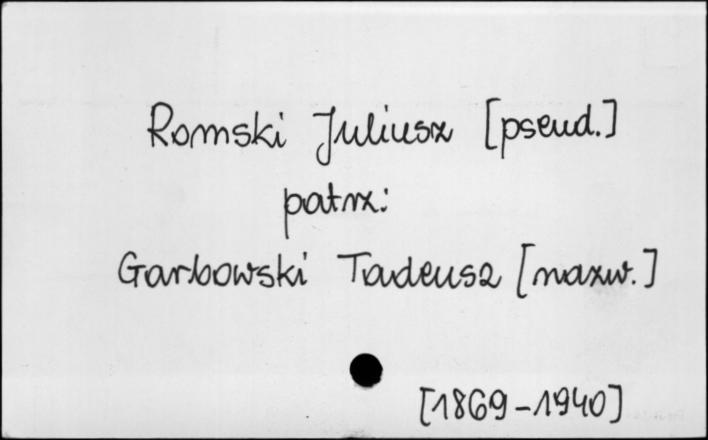 Romski Juliusz [pseud.]
patrz:
Garbowski Tadeusz [nazw.]
[1869-1940]